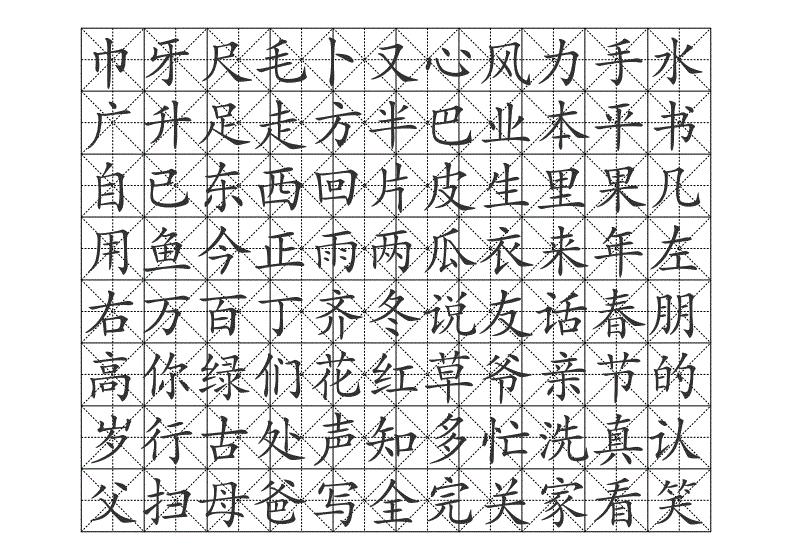 巾牙尺毛卜又心风力手水
广升足走方半巴业本平书
自己东西回片皮生里果几
用鱼今正雨两瓜衣来年左
右万百丁齐冬说友话春朋
高你绿们花红草爷亲节的
岁行古处声知多忙洗真认
父扫母爸写全完关家看笑